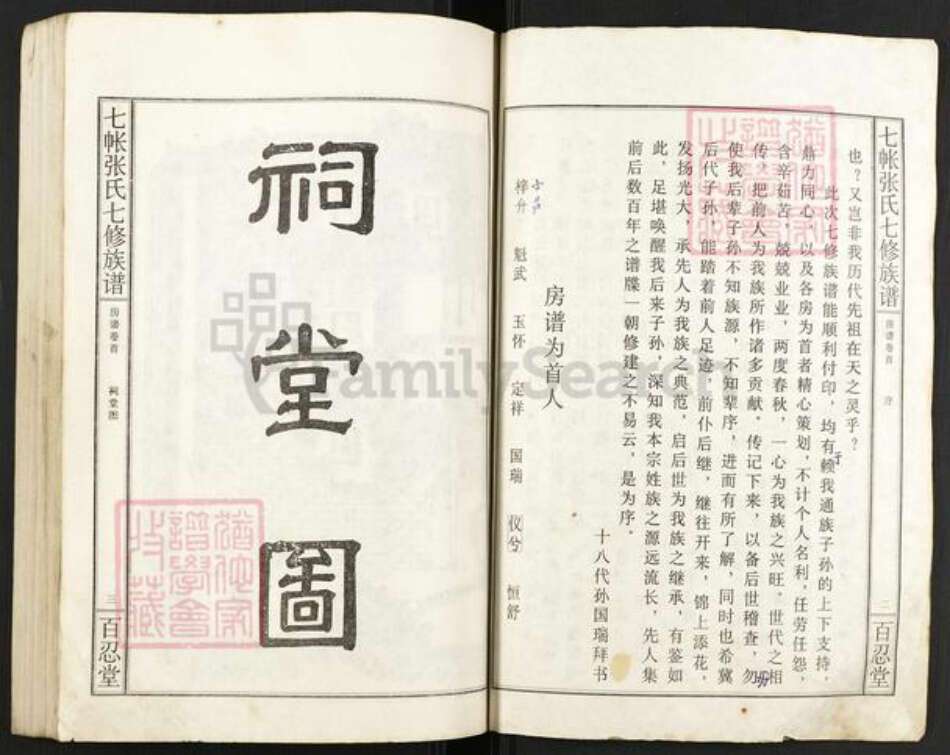 七帐张氏七修族谱
房谱卷首
序
二
百忍堂
也？又岂非我历代先祖在天之灵乎？
此次七修族谱能顺利付印，均有赖于我通族子孙的上下支持，
鼎力同心，以及各房为首者精心策划，不计个人名利，任劳任怨，
含辛茹苦，兢兢业业，两度春秋，一心为我族之兴旺，世代之相
传，把前人为我族所作诸多贡献，传记下来，以备后世稽查，勿
使我后辈子孙不知族源，不知辈序，进而有所了解，同时也希冀
后代子孙，能踏着前人足迹，前仆后继，继往开来，锦上添花，
发扬光大，承先人为我族之典范，启后世为我族之继承，有鉴如
此，足堪唤醒我后来子孙，深知我本宗姓族之源远流长，先人集
前后数百年之谱牒一朝修建之不易云，是为序。
十八代孙国瑞拜书
房谱为首人
梓升 魁武 玉怀 定祥 国瑞 仪兮 恒舒
七帐张氏七修族谱
房谱卷首
祠堂图
三
百忍堂
祠堂图
FamilySearch